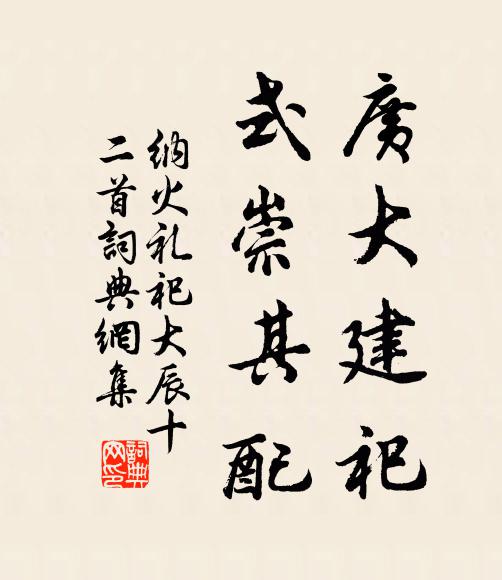 廣大建祀
式崇其配
納火礼祀大辰十
二首詞典網集
詞典
网印